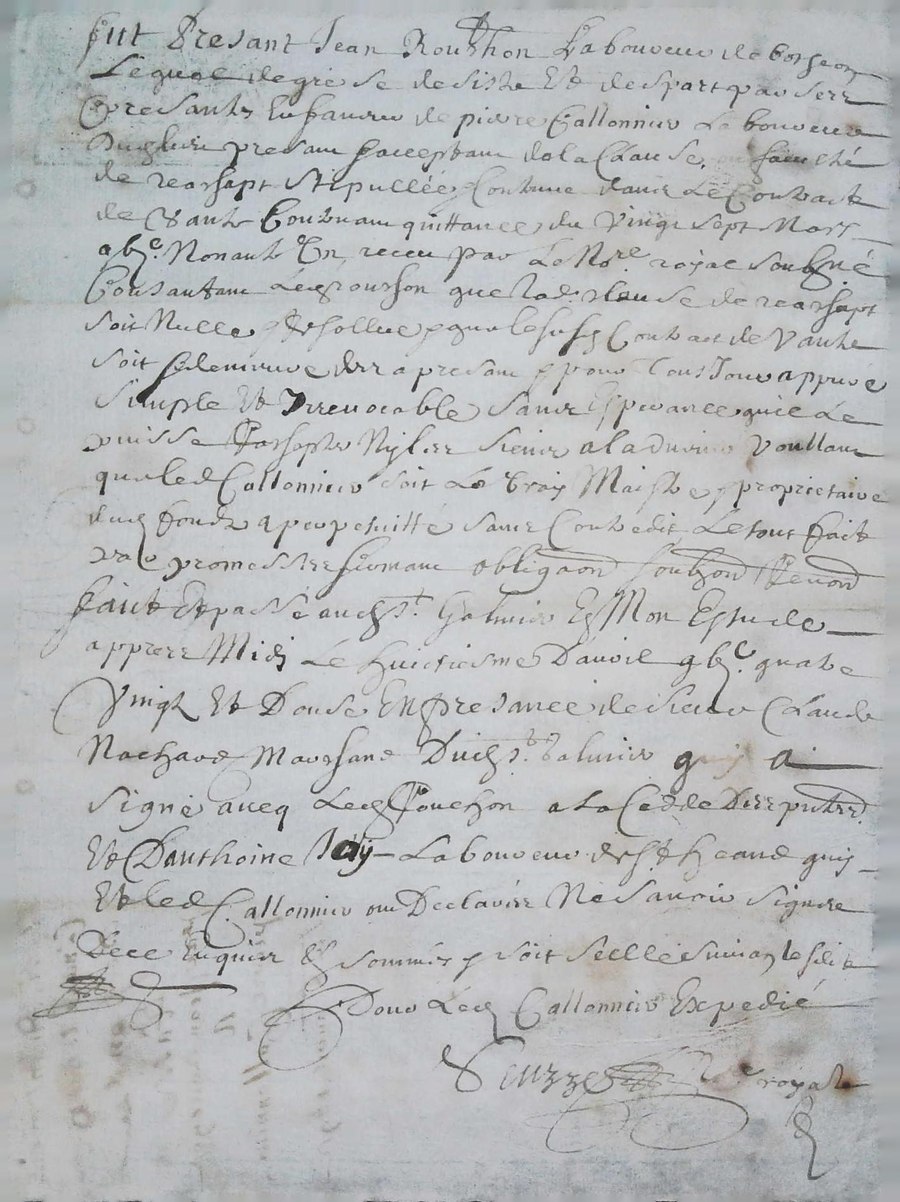 fut Presant Jean Rouchon Laboureur de
Lequel de gré se desiste Et despart par ses
presantes En faveur de pierre Callonnier Laboureur
presant acceptant de la Clause faculté
de reachapt stipullée Contenue dans Le Contract
de Vante Contenant quittance du Vingt sept Mars
gbc. Nonante Un receu par Le Nore royal soubsné
Consantant Led rouchon que lad. clause de reachapt
soit Nulle resollue & que le susd Contract de Vante
soit & demeure des a presant & pour Tousjour appuré
simple Et Irrevocable sans Esperance qu'il Le
puisse Ny les siens a ladvenir Voullant
que led Callonnier soit Le Vray Maistre & proprietaire
dud fonds a perpetuitté sans Contredit Le tout fait
par promesses sermant obligaon soubzon Renond
faict Et passé aud St. Galmier En Mon Estude
appres Midy Le huictiesme Davril gbc. quatre
Vingt Et Douse En presance de sieur Claude
Nachard Marchand Dud St. Galmier quy a
signé avecq Led Rouchon a La Cedde Des putres.
Et Danthoine Laboureur de quy
Et led Callonnier ont Declairés Ne savoir signer
De ce Enquis & sommés & soit scellé suivant ledit
Pour Led Callonnier Expedié
re royal